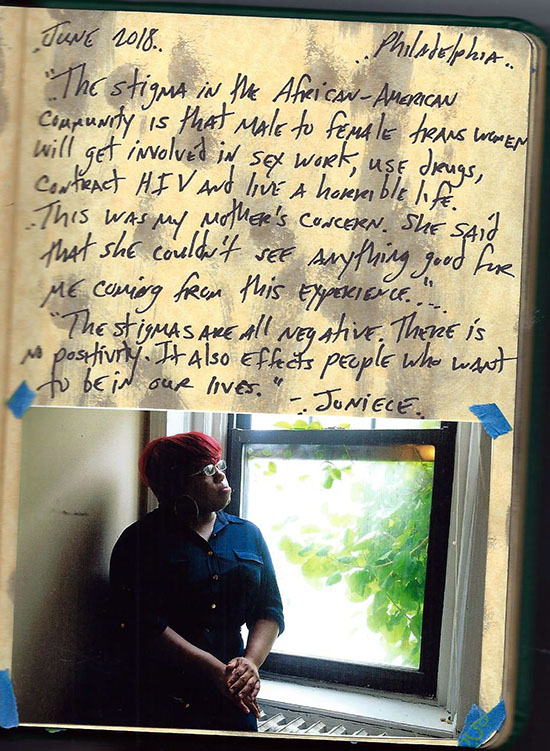 JUNE 2018.. ..Philadelphia..
"The stigma in the African-American
community is that male to female trans women
will get involved in sex work, use drugs,
contract HIV and live a horrible life.
This was my mother's concern. She said
that she couldn't see anything good for
me coming from this experience."...
"The stigmas are all negative. There is
no positivity. It also effects people who want
to be in our lives."
- Juniece..